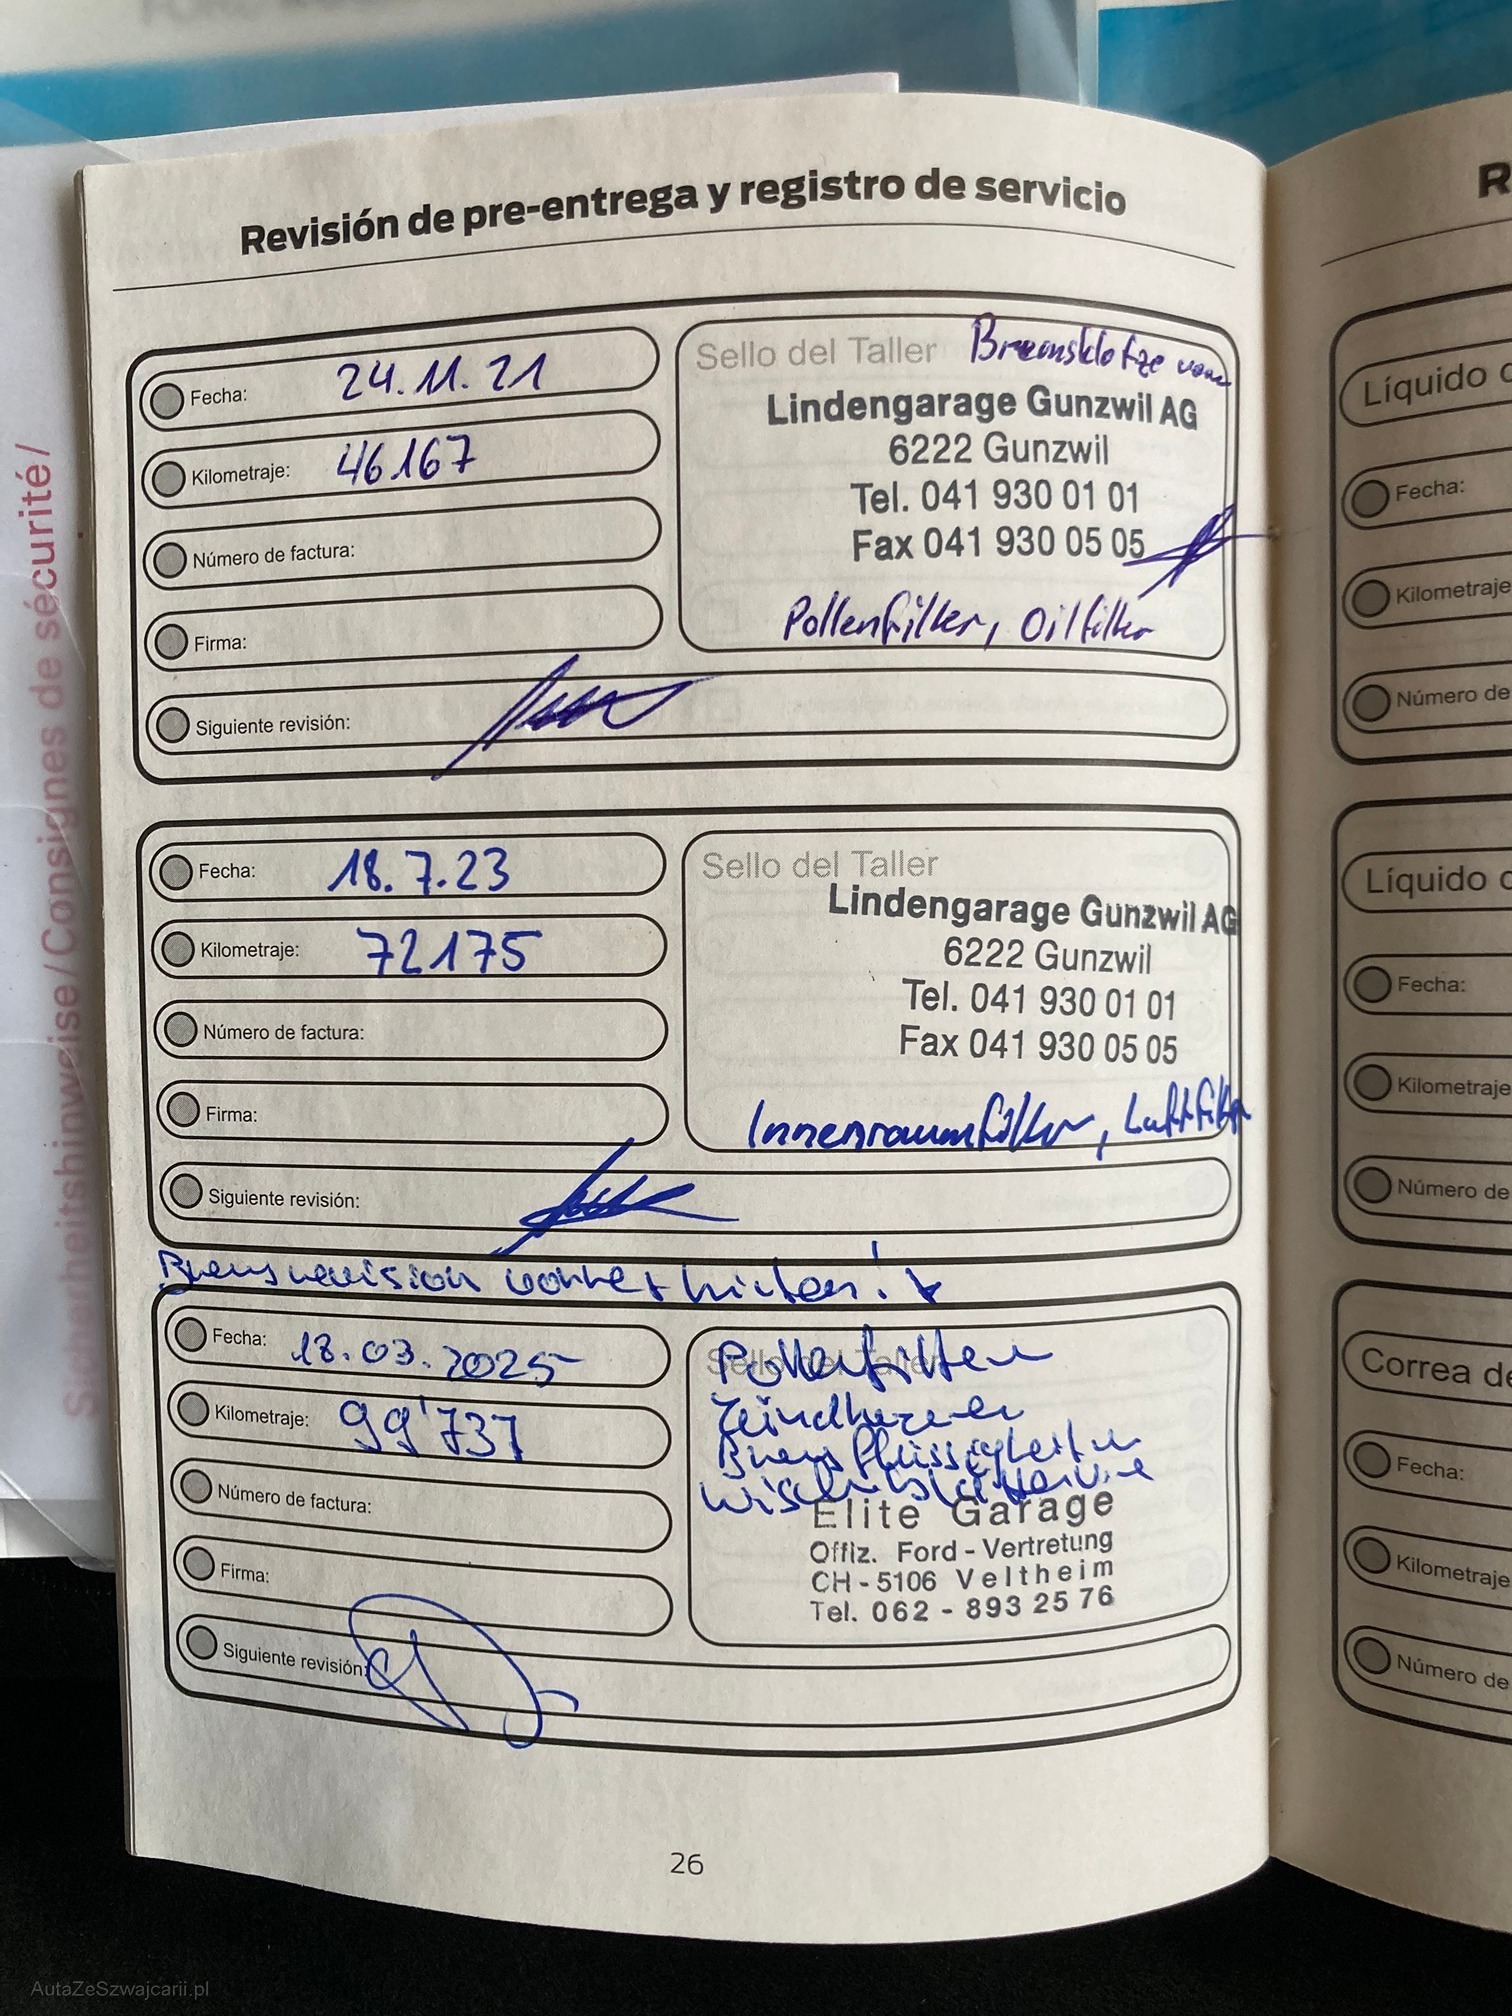 Revisión de pre-entrega y registro de servicio
Fecha: 24.11.21
Kilometraje: 46167
Número de factura:
Firma:
Siguiente revisión:
Sello del Taller Bremsklötze vorne
Lindengarage Gunzwil AG
6222 Gunzwil
Tel. 041 930 01 01
Fax 041 930 05 05
Pollenfilter, Oilfilter
Fecha: 18.7.23
Kilometraje: 72175
Número de factura:
Firma:
Siguiente revisión:
Sello del Taller
Lindengarage Gunzwil AG
6222 Gunzwil
Tel. 041 930 01 01
Fax 041 930 05 05
Innenraumfilter, Luftfilter
Bremsrevision vorne + hinten!
Fecha: 18.03.2025
Kilometraje: 99'737
Número de factura:
Firma:
Siguiente revisión:
Sello del Taller
Pollenfilter
Zündkerzen
Bremsflüssigkeit
Elite Garage
Offiz. Ford - Vertretung
CH - 5106 Veltheim
Tel. 062 - 893 25 76
26
R
Líquido
Fecha:
Kilometraje
Número de
Líquido
Fecha:
Kilometraje
Número de
Correa de
Fecha:
Kilometraje
Número de
Sicherheitshinweise / Consignes de sécurité /
AutaZeSzwajcarii.pl